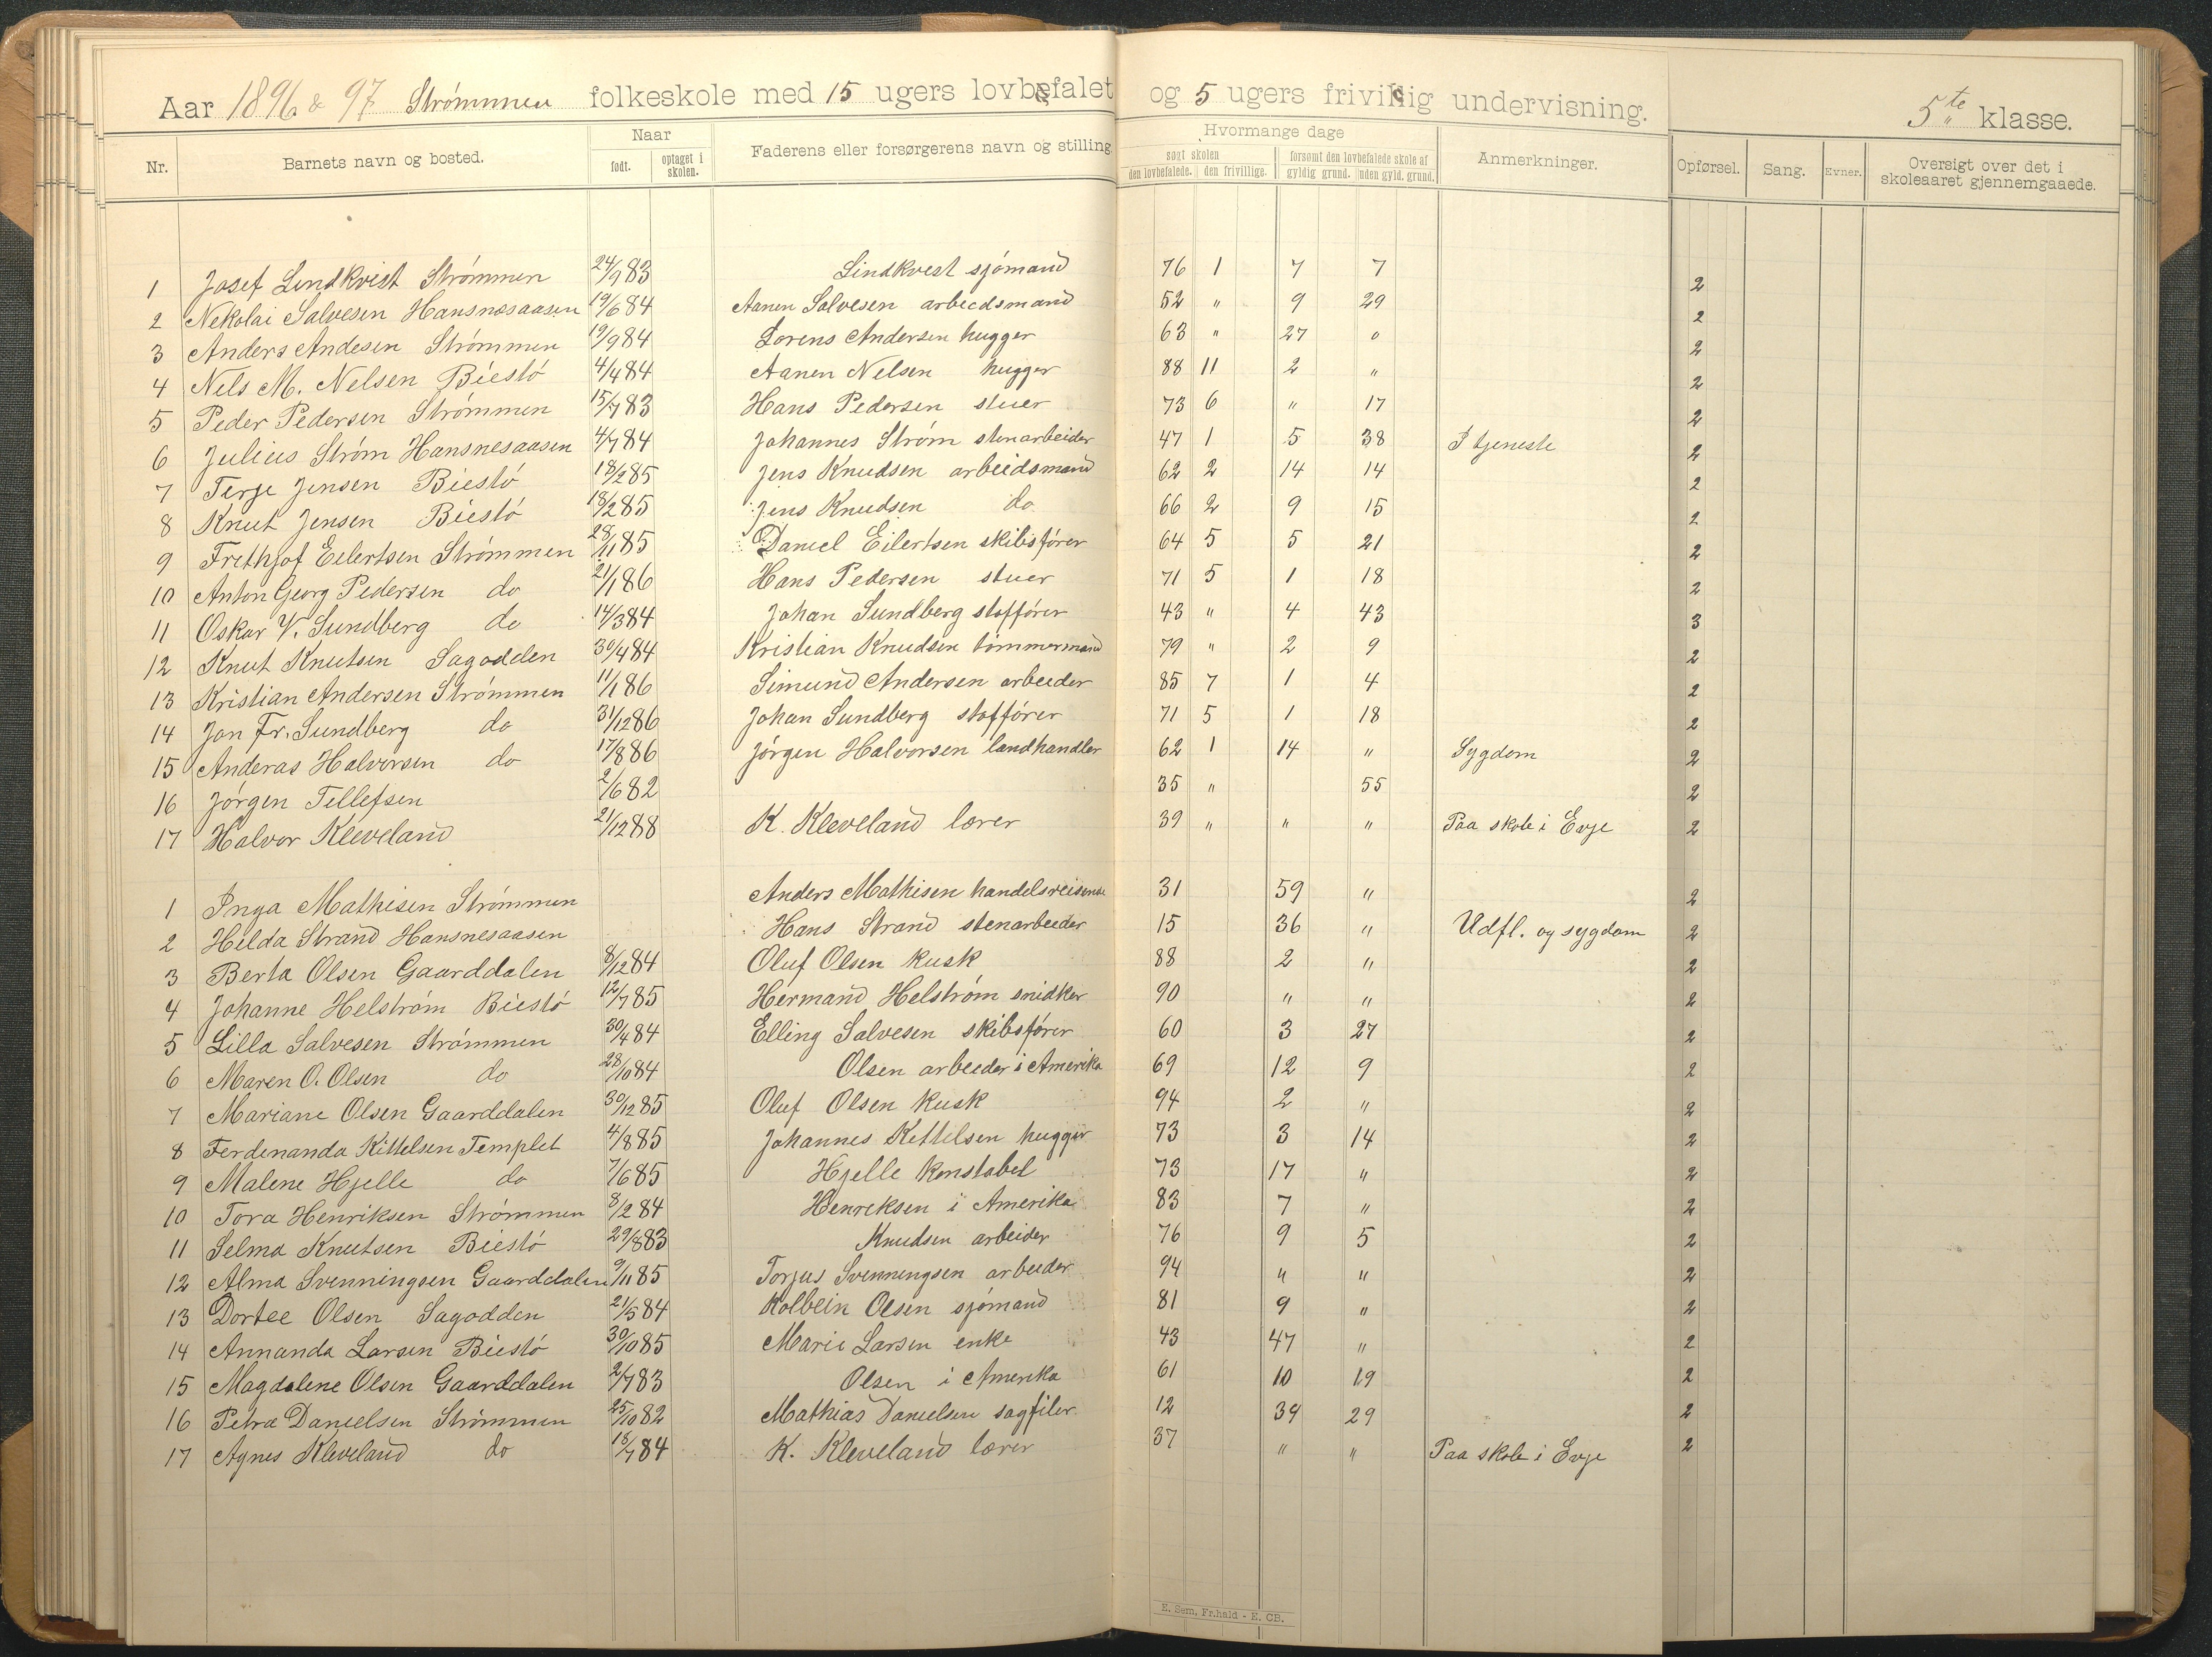 Aar 1896 & 97 Strømmen folkeskole med 15 ugers lovbefalet og 5 ugers frivillig undervisning. 5te klasse.
Nr. Barnets navn og bosted. Naar født. optaget i skolen. Faderens eller forsørgerens navn og stilling Hvormange dage søgt skolen den lovbefalede. den frivillige. forsømt den lovbefalede skole af gyldig grund. uden gyld. grund. Anmerkninger. Opførsel. Sang. Evner. Oversigt over det i skoleaaret gjennemgaaede.
1 Josef Lindkvist Strømmen 24/9 83 Lindkvist sjømand 76 1 7 7 2
2 Nekolai Salvesen Hansnesaasen 19/6 84 Aanen Salvesen arbeidsmand 52 " 9 29 2
3 Anders Andesen Strømmen 19/9 84 Lorens Andersen hugger 63 " 27 0 2
4 Nels M. Nelsen Biestø 4/4 84 Aanen Nelsen hugger 88 11 2 " 2
5 Peder Pedersen Strømmen 15/7 83 Hans Pedersen stuer 73 6 " 17 2
6 Julius Strøm Hansnesaasen 4/7 84 Johannes Strøm stenarbeider 47 1 5 38 I tjeneste 2
7 Terje Jensen Biestø 18/2 85 Jens Knudsen arbeidsmand 62 2 14 14 2
8 Knut Jensen Biestø 18/2 85 Jens Knudsen do 66 2 9 15 2
9 Frithjof Eilertsen Strømmen 28/11 85 Daniel Eilertsen skibsfører 64 5 5 21 2
10 Anton Georg Pedersen do 21/1 86 Hans Pedersen stuer 71 5 1 18 2
11 Oskar V. Sundberg do 14/3 84 Johan Sundberg stoffører 43 " 4 43 3
12 Knut Knutsen Sagodden 30/4 84 Kristian Knudsen tømmermand 79 " 2 9 2
13 Kristian Andersen Strømmen 11/1 86 Simund Andersen arbeider 85 7 1 4 2
14 Jon Fr. Sundberg do 31/12 86 Johan Sundberg stoffører 71 5 1 18 2
15 Anderas Halvorsen do 17/8 86 Jørgen Halvorsen landhandler 62 1 14 " Sygdom 2
16 Jørgen Tellefsen 2/6 82 35 " 55 2
17 Halvor Kleveland 21/12 88 K. Kleveland lærer 39 " " " Paa skole i Evje 2
1 Inga Mathisen Strømmen Anders Mathisen handelsreisende 31 59 " 2
2 Helda Strand Hansnesaasen Hans Strand stenarbeider 15 36 " Udfl. og sygdom 2
3 Berta Olsen Gaarddalen 8/12 84 Oluf Olsen kusk 88 2 " 2
4 Johanne Helstrøm Biestø 12/7 85 Hermand Helstrøm snidker 90 " " 2
5 Lilla Salvesen Strømmen 30/4 84 Elling Salvesen skibsfører 60 3 27 2
6 Maren O. Olsen do 28/10 84 Olsen arbeider i Amerika 69 12 9 2
7 Mariane Olsen Gaarddalen 30/12 85 Oluf Olsen kusk 94 2 " 2
8 Ferdenanda Kittelsen Templet 4/8 85 Johannes Kettelsen hugger 73 3 14 2
9 Malene Hjelle do 7/6 85 Hjelle konstabel 73 17 " 2
10 Tora Henriksen Strømmen 8/2 84 Henreksen i Amerika 83 7 " 2
11 Selma Knutsen Biestø 29/8 83 Knudsen arbeider 76 9 5 2
12 Alma Svenningsen Gaarddalen 9/11 85 Torjus Svenningsen arbeider 94 " " 2
13 Dortee Olsen Sagodden 21/5 84 Kolbein Olsen sjømand 81 9 " 2
14 Annanda Larsen Biestø 30/10 85 Marie Larsen enke 43 47 " 2
15 Magdalene Olsen Gaarddalen 2/7 83 Olsen i Amerika 61 10 19 2
16 Petra Danielsen Strømmen 25/10 82 Mathias Danielsen sagfiler 12 39 29 2
17 Agnes Kleveland do 18/7 84 K. Kleveland lærer 37 " " Paa skole i Evje 2
E. Sem, Fr.hald - E. CB.